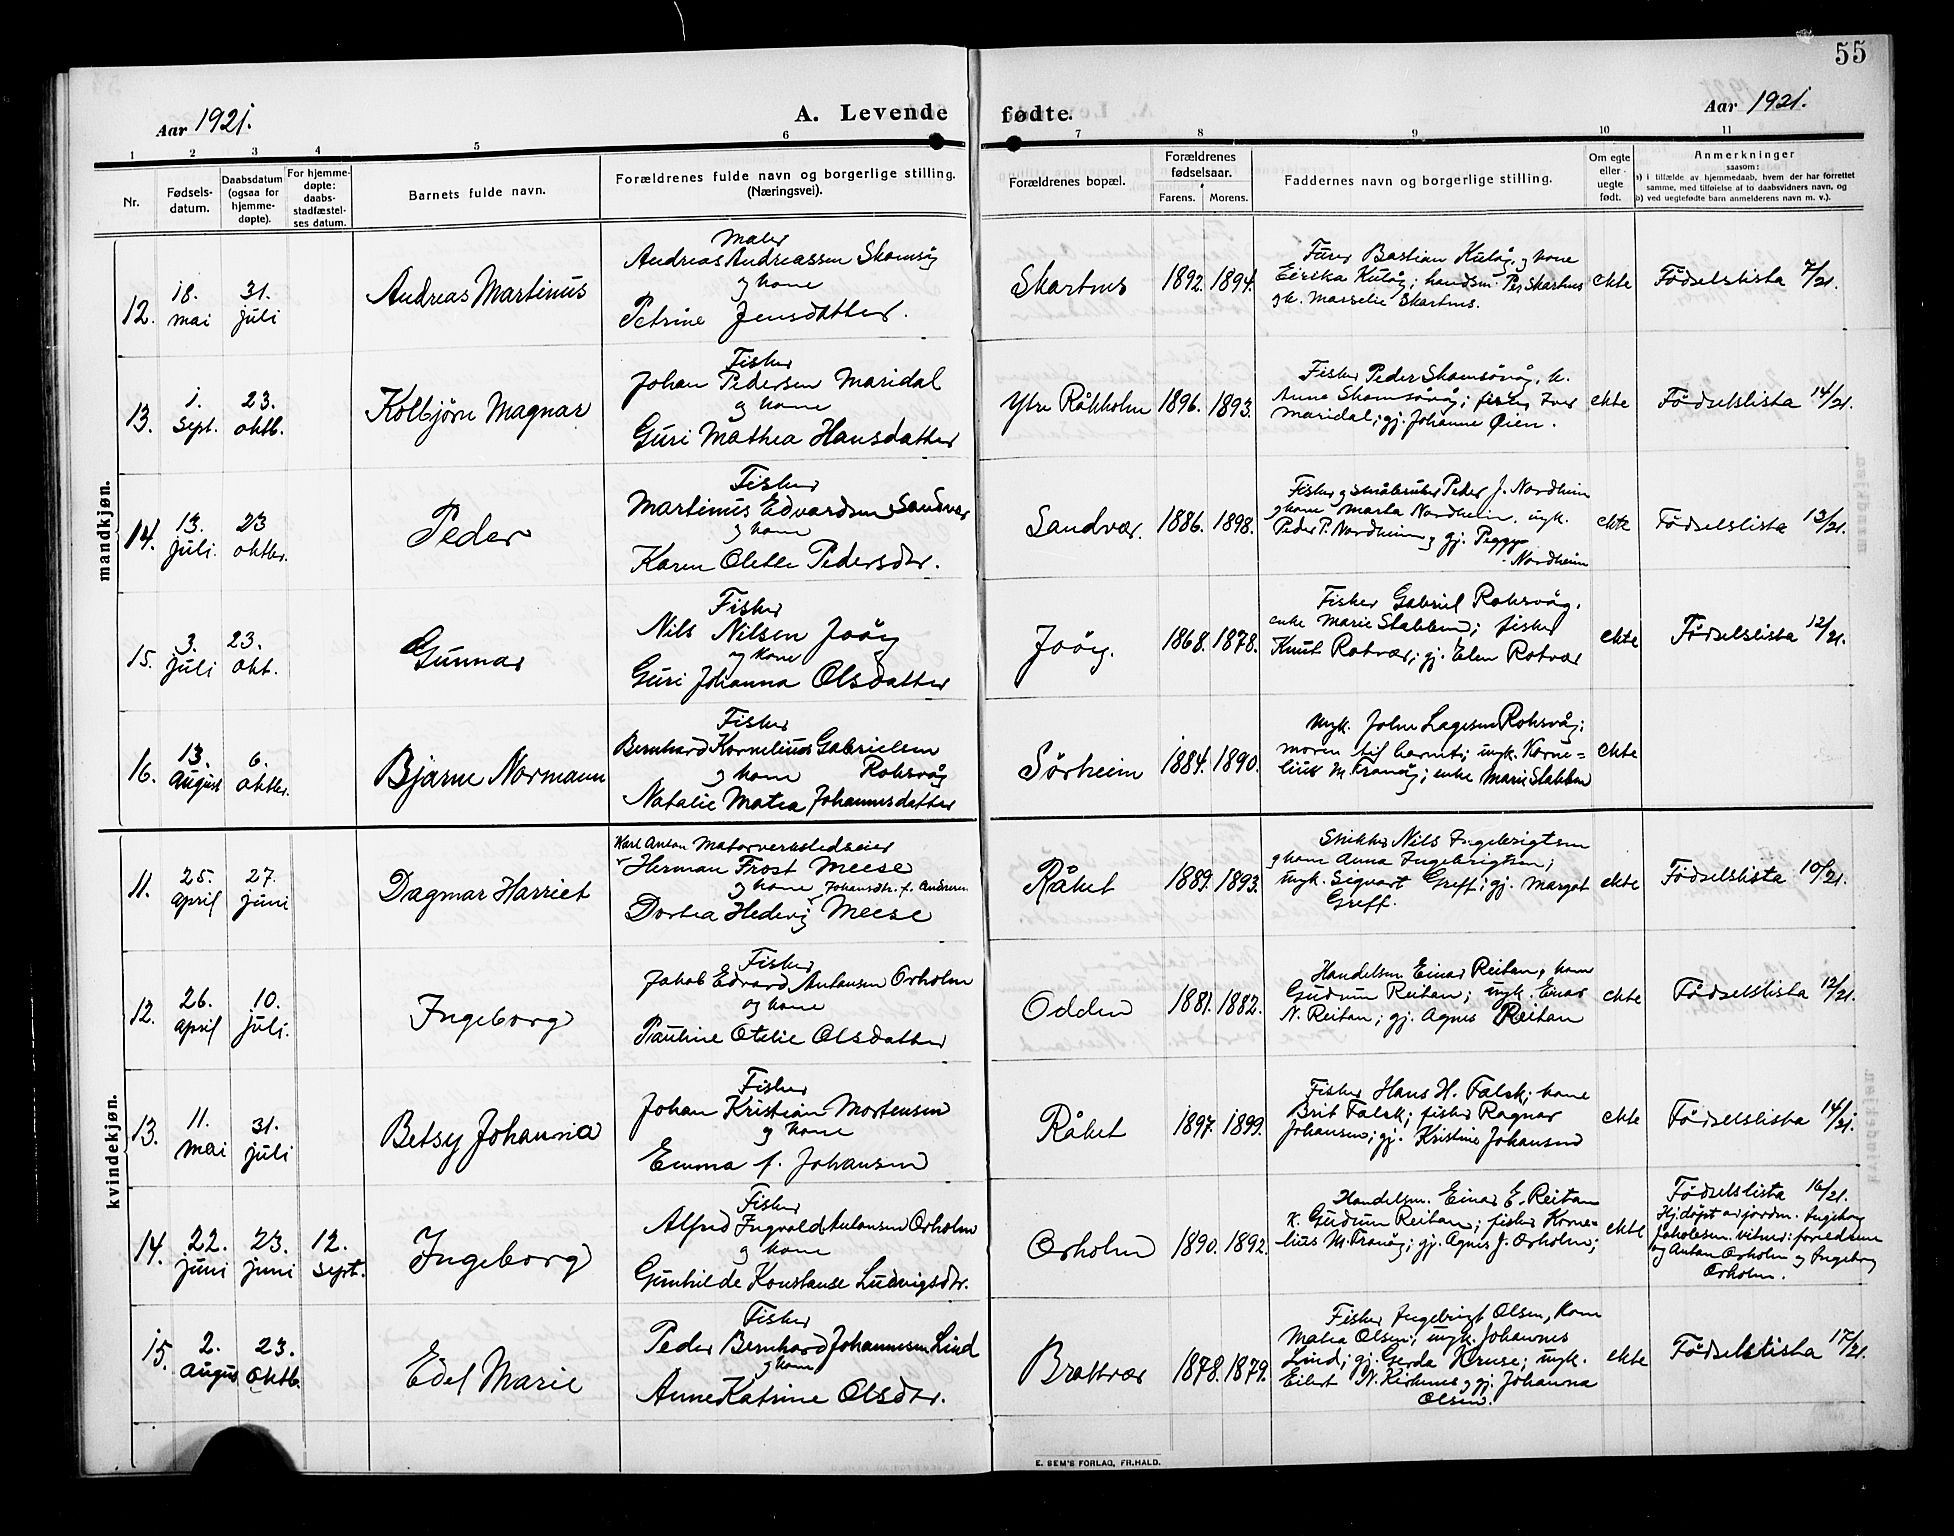 55
Aar 1921.
A. Levende fødte.
Aar 1921.
1 2 3 4 5 6 7 8 9 10 11
Nr.
Fødsels-
datum.
Daabsdatum
(ogsaa for
hjemme-
døpte).
For hjemme-
døpte:
daabs-
stadfæstel-
ses datum.
Barnets fulde navn.
Forældrenes fulde navn og borgerlige stilling.
(Næringsvei).
Forældrenes bopæl.
Forældrenes
fødselsaar.
Farens. Morens.
Faddernes navn og borgerlige stilling.
Om egte
eller
uegte
født.
Anmerkninger
saasom:
a) i tilfælde av hjemmedaab, hvem der har forrettet
samme, med tilføielse af to daabsvidners navn, og
b) ved uegtefødte barn anmelderens navn m. v.).
mandkjøn.
12.
18.
mai
31.
juli
Andreas Martinus
Maler
Andreas Andreassen Skomsøy
og kone
Petrine Jensdatter.
Skartnes
1892. 1894.
Bastian Kuløy, og kone
Eirika Kuløy; handsm. Per Skartnes
og k. Marselie Skartnes.
ekte
Fødselslista 7/21.
13.
1.
Sept.
23.
oktb.
Kolbjørn Magnar
Fisker
Johan Pedersen Maridal
og kone
Guri Mathea Hansdatter
Ytre Råkholm
1896. 1893.
Fisker Peder Skomsøvåg, k.
Anne Skomsøvåg; fisker Iver
Maridal; gj. Johanne Øien.
ekte
Fødselslista 14/21.
14.
13.
juli.
23
oktbr.
Peder
Fisker
Martinus Edvardsen Sandvær
og kone
Karen Olette Pedersdtr.
Sandvær.
1886. 1898.
Fisker og småbruker Peder J. Nordheim
og kone Marta Nordheim, ungk.
Peder P. Nordheim og gj. Peggy
Nordheim
ekte
Fødselslista 13/21.
15.
3.
juli
23.
okt.
Gunnar
Fisker
Nils Nilsen Joøy
og kone
Guri Johanna Olsdatter
Joøy.
1868. 1878.
Fisker Gabriel Roksvåg,
enke Marie Stabben; fisker
Knut Rotvær; gj. Elen Rotvær
ekte
Fødselslista 12/21.
16.
13.
August
6.
oktbr.
Bjarne Normann
Fisker
Bernhard Kornelius Gabrielsen
og kone Roksvåg
Natalie Matea Johannesdatter
Sørheim
1884. 1890.
Ungk. John Lagesen Roksvåg;
moren til barnet; ungk. Korne=
lius M. Franøy; enke Marie Stabben
ekte
kvindekjøn.
11.
25.
april
27.
juni
Dagmar Harriet
Karl Anton Motorverkstedseier
Herman Frost Meese
og kone Johansdtr. f. Andersen
Dortea Hedevig Meese
Råket
1889. 1893.
Snikker Nils Ingebrigtsen
og kone Anna Ingebrigtsen;
ungk. Sigvart Greff; gj. Margot
Greff.
ekte
Fødselslista 10/21.
12.
26.
april
10.
juli.
Ingeborg
Fisker
Jakob Edvard Antonsen Orholm
og kone
Pauline Otelie Olsdatter
Odden
1881. 1882.
Handelsm Einar Reitan, kone
Gudrun Reitan; ungk. Einar
N. Reitan; gj. Agnes Reitan
ekte
Fødselslista 12/21.
13.
11.
mai
31.
juli
Betsy Johanna
Fisker
Johan Kristian Mortensen
og kone
Emma f. Johansen
Råket
1897. 1899.
Fisker Hans H. Falsk; kone
Brit Falsk; fisker Ragnar
Johansen; gj. Kristine Johansen
ekte
Fødselslista 14/21.
14.
22.
juni
23.
juni
12.
sept.
Ingeborg
Fisker
Alfred Ingvald Antonsen Orholm
og kone
Gunhilde Konstanse Ludvigsdtr.
Orholm
1890. 1892.
Handelsm. Einar E. Reitan
k. Gudrun Reitan; fisker Korne=
lius M. Franøy; gj. Agnes J. Orholm;
ekte
Fødselslista 16/21.
Hj.døpt av jordm. Ingeborg
Jakobsen. Vitner: foreldrene
og Anton Orholm og Ingeborg
Orholm.
15.
2.
August
23.
Oktb.
Edel Marie
Fisker
Peder Bernhard Johannesen Lind
og kone
Anne Katrine Olsdtr.
Brattvær
1878. 1879.
Fisker Ingebrigt Olsen, kone
Matea Olsen; ungk. Johannes
Lind; gj. Gerda Kruse; ungk.
Eilert N. Kirknes og gj. Johanna
Olsen.
ekte
Fødselslista 17/21.
E. SEM'S FORLAG, FR.HALD.